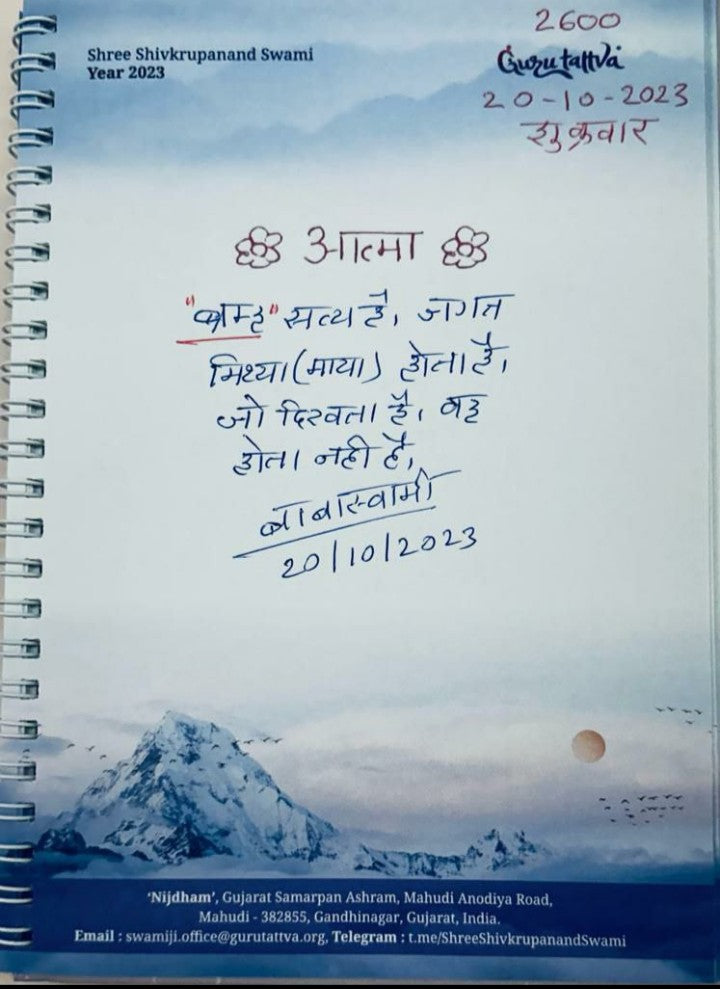 2600
Shree Shivkrupanand Swami
Year 2023
Gurutattva
20-10-2023
शुक्रवार
आत्मा
"ब्रम्ह" सत्य है, जगत
मिथ्या (माया) होता है,
जो दिखता है, वह
होता नही है,
बाबास्वामी
20/10/2023
'Nijdham', Gujarat Samarpan Ashram, Mahudi Anodiya Road,
Mahudi - 382855, Gandhinagar, Gujarat, India.
Email : swamiji.office@gurutattva.org, Telegram : t.me/ShreeShivkrupanandSwami